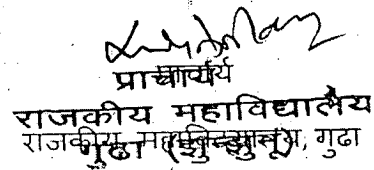 प्राचार्य
राजकीय महाविद्यालय
राजकीय महाविद्यालय, गुढा
गुढा (झुन्झुनू)